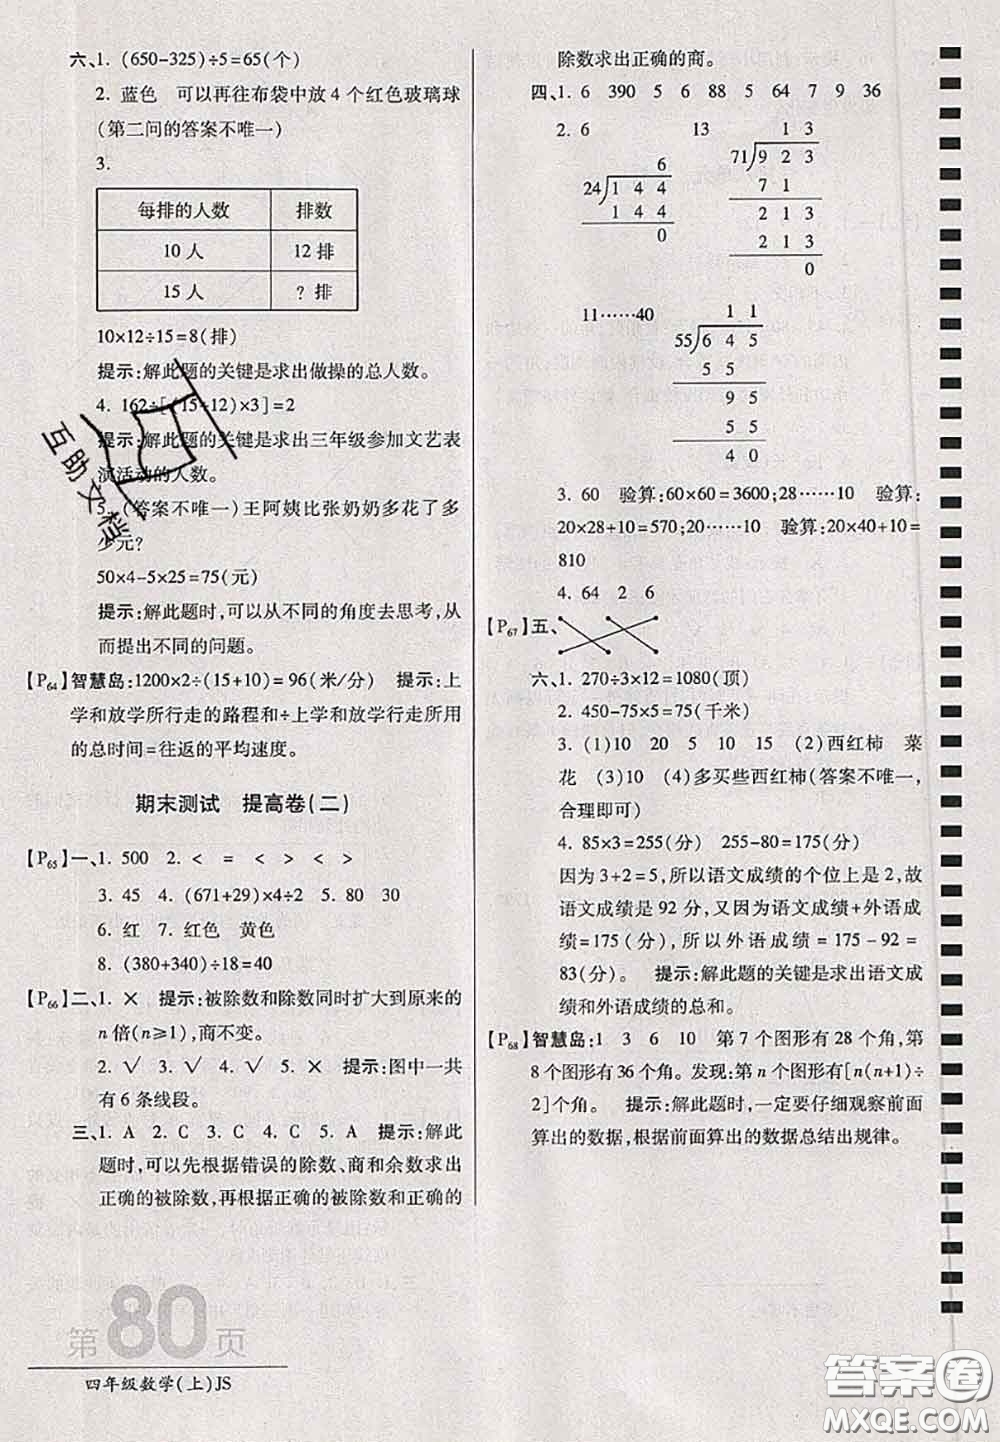 六、1. (650-325)÷5=65(个)
2. 蓝色 可以再往布袋中放 4 个红色玻璃球
(第二问的答案不唯一)
3.
每排的人数 排数
10 人 12 排
15 人 ? 排
10×12÷15=8(排)
提示:解此题的关键是求出做操的总人数。
4. 162÷[(15+12)×3]=2
提示:解此题的关键是求出三年级参加文艺表
演活动的人数。
5. (答案不唯一)王阿姨比张奶奶多花了多
少元?
50×4-5×25=75(元)
提示:解此题时,可以从不同的角度去思考,从
而提出不同的问题。
【P64】智慧岛:1200×2÷(15+10)=96(米/分) 提示:上
学和放学所行走的路程和÷上学和放学行走所用
的总时间=往返的平均速度。
期末测试 提高卷(二)
【P65】一、1. 500 2. < = < > < >
3. 45 4. (671+29)×4÷2 5. 80 30
6. 红 7. 红色 黄色
8. (380+340)÷18=40
【P66】二、1. × 提示:被除数和除数同时扩大到原来的
n 倍(n≥1),商不变。
2. √ 3. √ 4. √ 5. × 提示:图中一共
有 6 条线段。
三、1. A 2. C 3. C 4. C 5. A 提示:解此
题时,可以先根据错误的除数、商和余数求出
正确的被除数,再根据正确的被除数和正确的
除数求出正确的商。
四、1. 6 390 5 6 88 5 64 7 9 36
2. 6 13
6
24 1 4 4
1 4 4
0
1 3
71 9 2 3
7 1
2 1 3
2 1 3
0
11……40
1 1
55 6 4 5
5 5
9 5
5 5
4 0
3. 60 验算:60×60=3600;28……10 验算:
20×28+10=570;20……10 验算:20×40+10=
810
4. 64 2 6
【P67】五、
六、1. 270÷3×12=1080(顶)
2. 450-75×5=75(千米)
3. (1)10 20 5 10 15 (2)西红柿 菜
花 (3)10 (4)多买些西红柿(答案不唯一,
合理即可)
4. 85×3=255(分) 255-80=175(分)
因为 3+2=5,所以语文成绩的个位上是 2,故
语文成绩是 92 分,又因为语文成绩+外语成
绩=175(分),所以外语成绩=175-92=
83(分)。 提示:解此题的关键是求出语文成
绩和外语成绩的总和。
【P68】智慧岛:1 3 6 10 第 7 个图形有 28 个角,第
8 个图形有 36 个角。发现:第 n 个图形有[n(n+1)÷
2]个角。 提示:解此题时,一定要仔细观察前面
算出的数据,根据前面算出的数据总结出规律。
第80页
四年级数学(上)JS
互助文档
答案圈
MXQE.COM